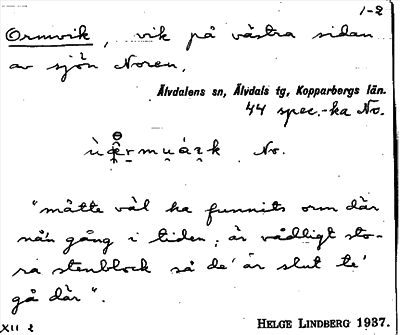 1-2
Ormvik, vik på västra sidan
av sjön Noren.
Älvdalens sn, Älvdals tg, Kopparbergs län.
44 spec.-ka No.
No.
"måtte väl ha funnits orm där
nå'n gång i tiden; är vådligt sto-
ra stenblock så de' är slut te'
gå där".
XII 2
HELGE LINDBERG 1937.